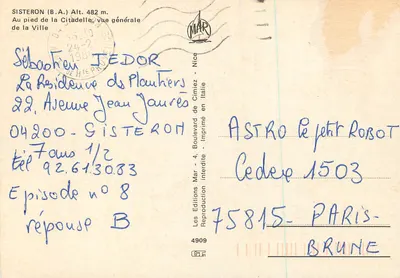 SISTERON (B.A.) Alt. 482 m.
Au pied de la Citadelle, vue générale
de la Ville
MAR
Sébastien JEDOR
La Residence des Plantiers
22, Avenue Jean Jaurès
04200 - SISTERON
7 ans 1/2
tél 92.61.30.83
Episode n° 8
réponse B
Les Editions Mar - 4, Boulevard de Cimiez - Nice
Reproduction interdite - Imprimé en Italie
4909
ASTRO le petit ROBOT
Cedex 1503
75815 - PARIS-
BRUNE